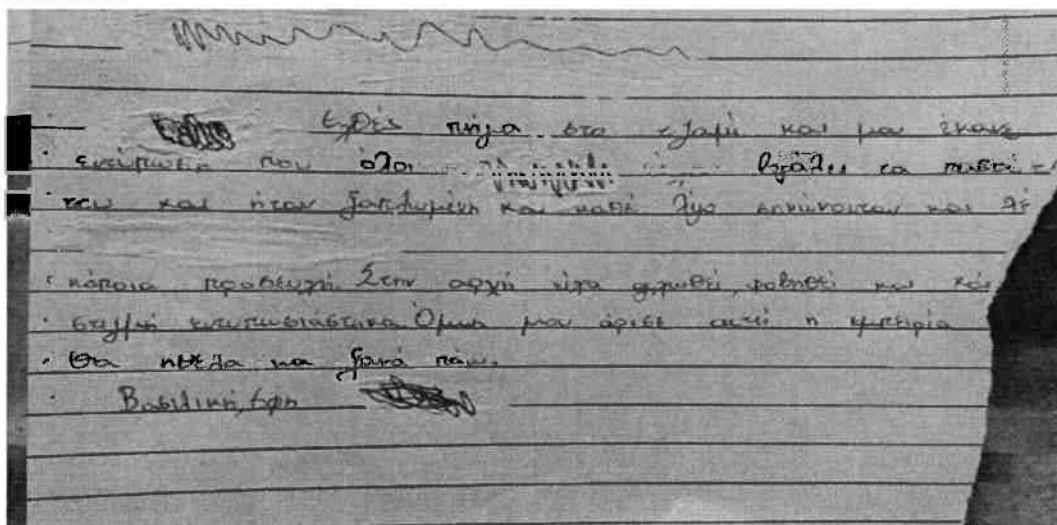 Εχθές πήγα στο τζαμί και μου έκανε
εντύπωση που όλοι βγάλει τα παπού
του και ήταν ξαπλωμένη και κάθε λίγο σηκώνονταν και λέ
κάποια προσευχή. Στην αρχή είχα φοβηθεί και κά
στιγμή εντυπωσιάστηκα. Όμως μου άρεσε αυτή η εμπειρία
Θα ήθελα να ξανά πάω.
Βασιλική, Εφη